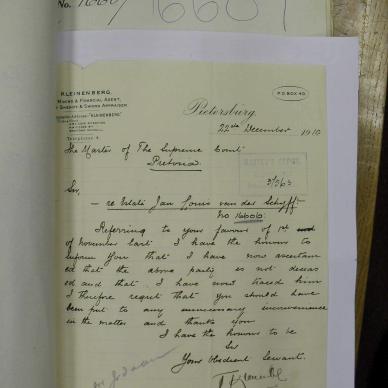 No. 16607
16607
KLEINENBERG.
& FINANCIAL AGENT,
SHERIFF & SWORN APPRAISER.
"KLEINENBERG."
P.O. BOX 40.
Pietersburg,
22nd December 1910
The Master of The Supreme Court
Pretoria
MASTER'S OFFICE
3/563
Sir,
re Estate Jan Louis van der Schyff
No 16606
Referring to your favour of 1st
of November last I have the honour to
inform You that I have now ascertain
ed that the above party is not deceas
ed and that I have now traced him
I therefore regret that you should have
been put to any unnecessary inconvenience
in the matter and thank you
I have the honour to be
Sir
Your Obedient Servant.